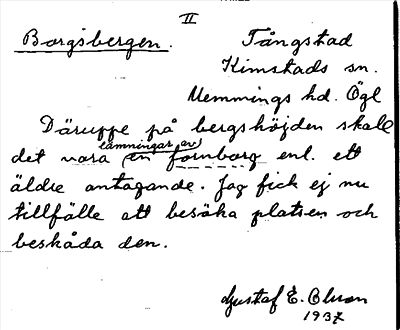 II
Borgsbergen. Tångstad
Kimstads sn.
Memmings hd. Ögl
Däruppe på bergshöjden skall
lämningar av
det vara en fornborg enl. ett
äldre antagande. Jag fick ej nu
tillfälle att besöka platsen och
beskåda den.
Gustaf E. Olson
1937